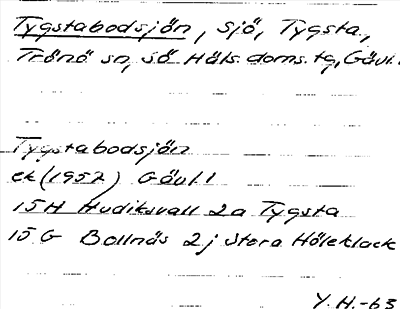 Tygstabodsjön, sjö, Tygsta,
Trönö sn, Sö Häls. doms. tg, Gävl.
Tygstabodsjön
ek (1957) Gävl. l
15H Hudiksvall 2a Tygsta
15G Bollnäs 2j Stora Höleklack
Y. H. -63